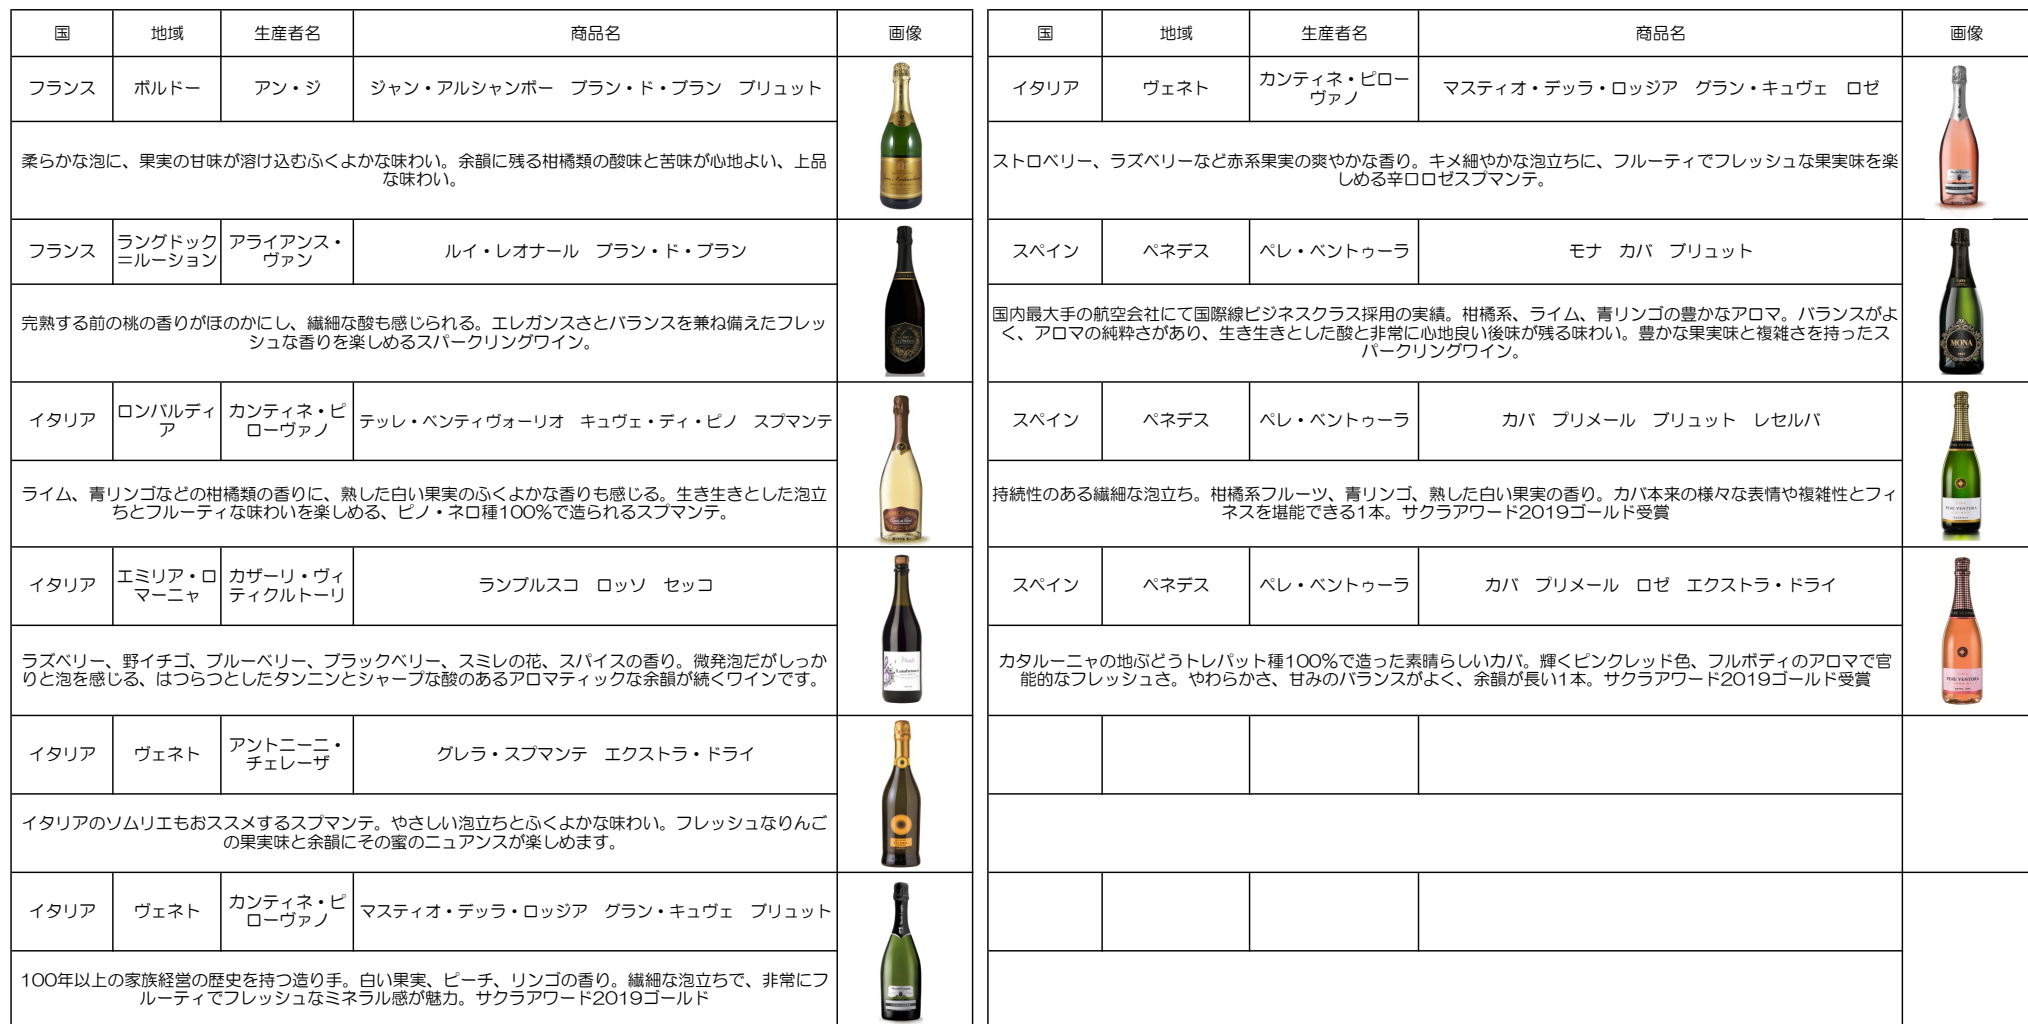 国 地域 生産者名 商品名 画像
フランス ボルドー アン・ジ ジャン・アルシャンボー ブラン・ド・ブラン ブリュット
柔らかな泡に、果実の甘味が溶け込むふくよかな味わい。余韻に残る柑橘類の酸味と苦味が心地よい、上品
な味わい。
フランス ラングドック
=ルーション アライアンス・
ヴァン ルイ・レオナール ブラン・ド・ブラン
完熟する前の桃の香りがほのかにし、繊細な酸も感じられる。エレガンスさとバランスを兼ね備えたフレッ
シュな香りを楽しめるスパークリングワイン。
イタリア ロンバルディ
ア カンティネ・ピ
ローヴァノ テッレ・ベンティヴォーリオ キュヴェ・ディ・ピノ スプマンテ
ライム、青リンゴなどの柑橘類の香りに、熟した白い果実のふくよかな香りも感じる。生き生きとした泡立
ちとフルーティな味わいを楽しめる、ピノ・ネロ種100%で造られるスプマンテ。
イタリア エミリア・ロ
マーニャ カザーリ・ヴィ
ティクルトーリ ランブルスコ ロッソ セッコ
ラズベリー、野イチゴ、ブルーベリー、ブラックベリー、スミレの花、スパイスの香り。微発泡だがしっか
りと泡を感じる、はつらつとしたタンニンとシャープな酸のあるアロマティックな余韻が続くワインです。
イタリア ヴェネト アントニーニ・
チェレーザ グレラ・スプマンテ エクストラ・ドライ
イタリアのソムリエもおススメするスプマンテ。やさしい泡立ちとふくよかな味わい。フレッシュなりんご
の果実味と余韻にその蜜のニュアンスが楽しめます。
イタリア ヴェネト カンティネ・ピ
ローヴァノ マスティオ・デッラ・ロッジア グラン・キュヴェ ブリュット
100年以上の家族経営の歴史を持つ造り手。白い果実、ピーチ、リンゴの香り。繊細な泡立ちで、非常にフ
ルーティでフレッシュなミネラル感が魅力。サクラアワード2019ゴールド
国 地域 生産者名 商品名 画像
イタリア ヴェネト カンティネ・ピロー
ヴァノ マスティオ・デッラ・ロッジア グラン・キュヴェ ロゼ
ストロベリー、ラズベリーなど赤系果実の爽やかな香り。キメ細やかな泡立ちに、フルーティでフレッシュな果実味を楽
しめる辛口ロゼスプマンテ。
スペイン ペネデス ペレ・ベントゥーラ モナ カバ ブリュット
国内最大手の航空会社にて国際線ビジネスクラス採用の実績。柑橘系、ライム、青リンゴの豊かなアロマ。バランスがよ
く、アロマの純粋さがあり、生き生きとした酸と非常に心地良い後味が残る味わい。豊かな果実味と複雑さを持ったス
パークリングワイン。
MONA
スペイン ペネデス ペレ・ベントゥーラ カバ プリメール ブリュット レセルバ
持続性のある繊細な泡立ち。柑橘系フルーツ、青リンゴ、熟した白い果実の香り。カバ本来の様々な表情や複雑性とフィ
ネスを堪能できる1本。サクラアワード2019ゴールド受賞
PERE VENTURA
スペイン ペネデス ペレ・ベントゥーラ カバ プリメール ロゼ エクストラ・ドライ
カタルーニャの地ぶどうトレパット種100%で造った素晴らしいカバ。輝くピンクレッド色、フルボディのアロマで官
能的なフレッシュさ。やわらかさ、甘みのバランスがよく、余韻が長い1本。サクラアワード2019ゴールド受賞
PERE VENTURA